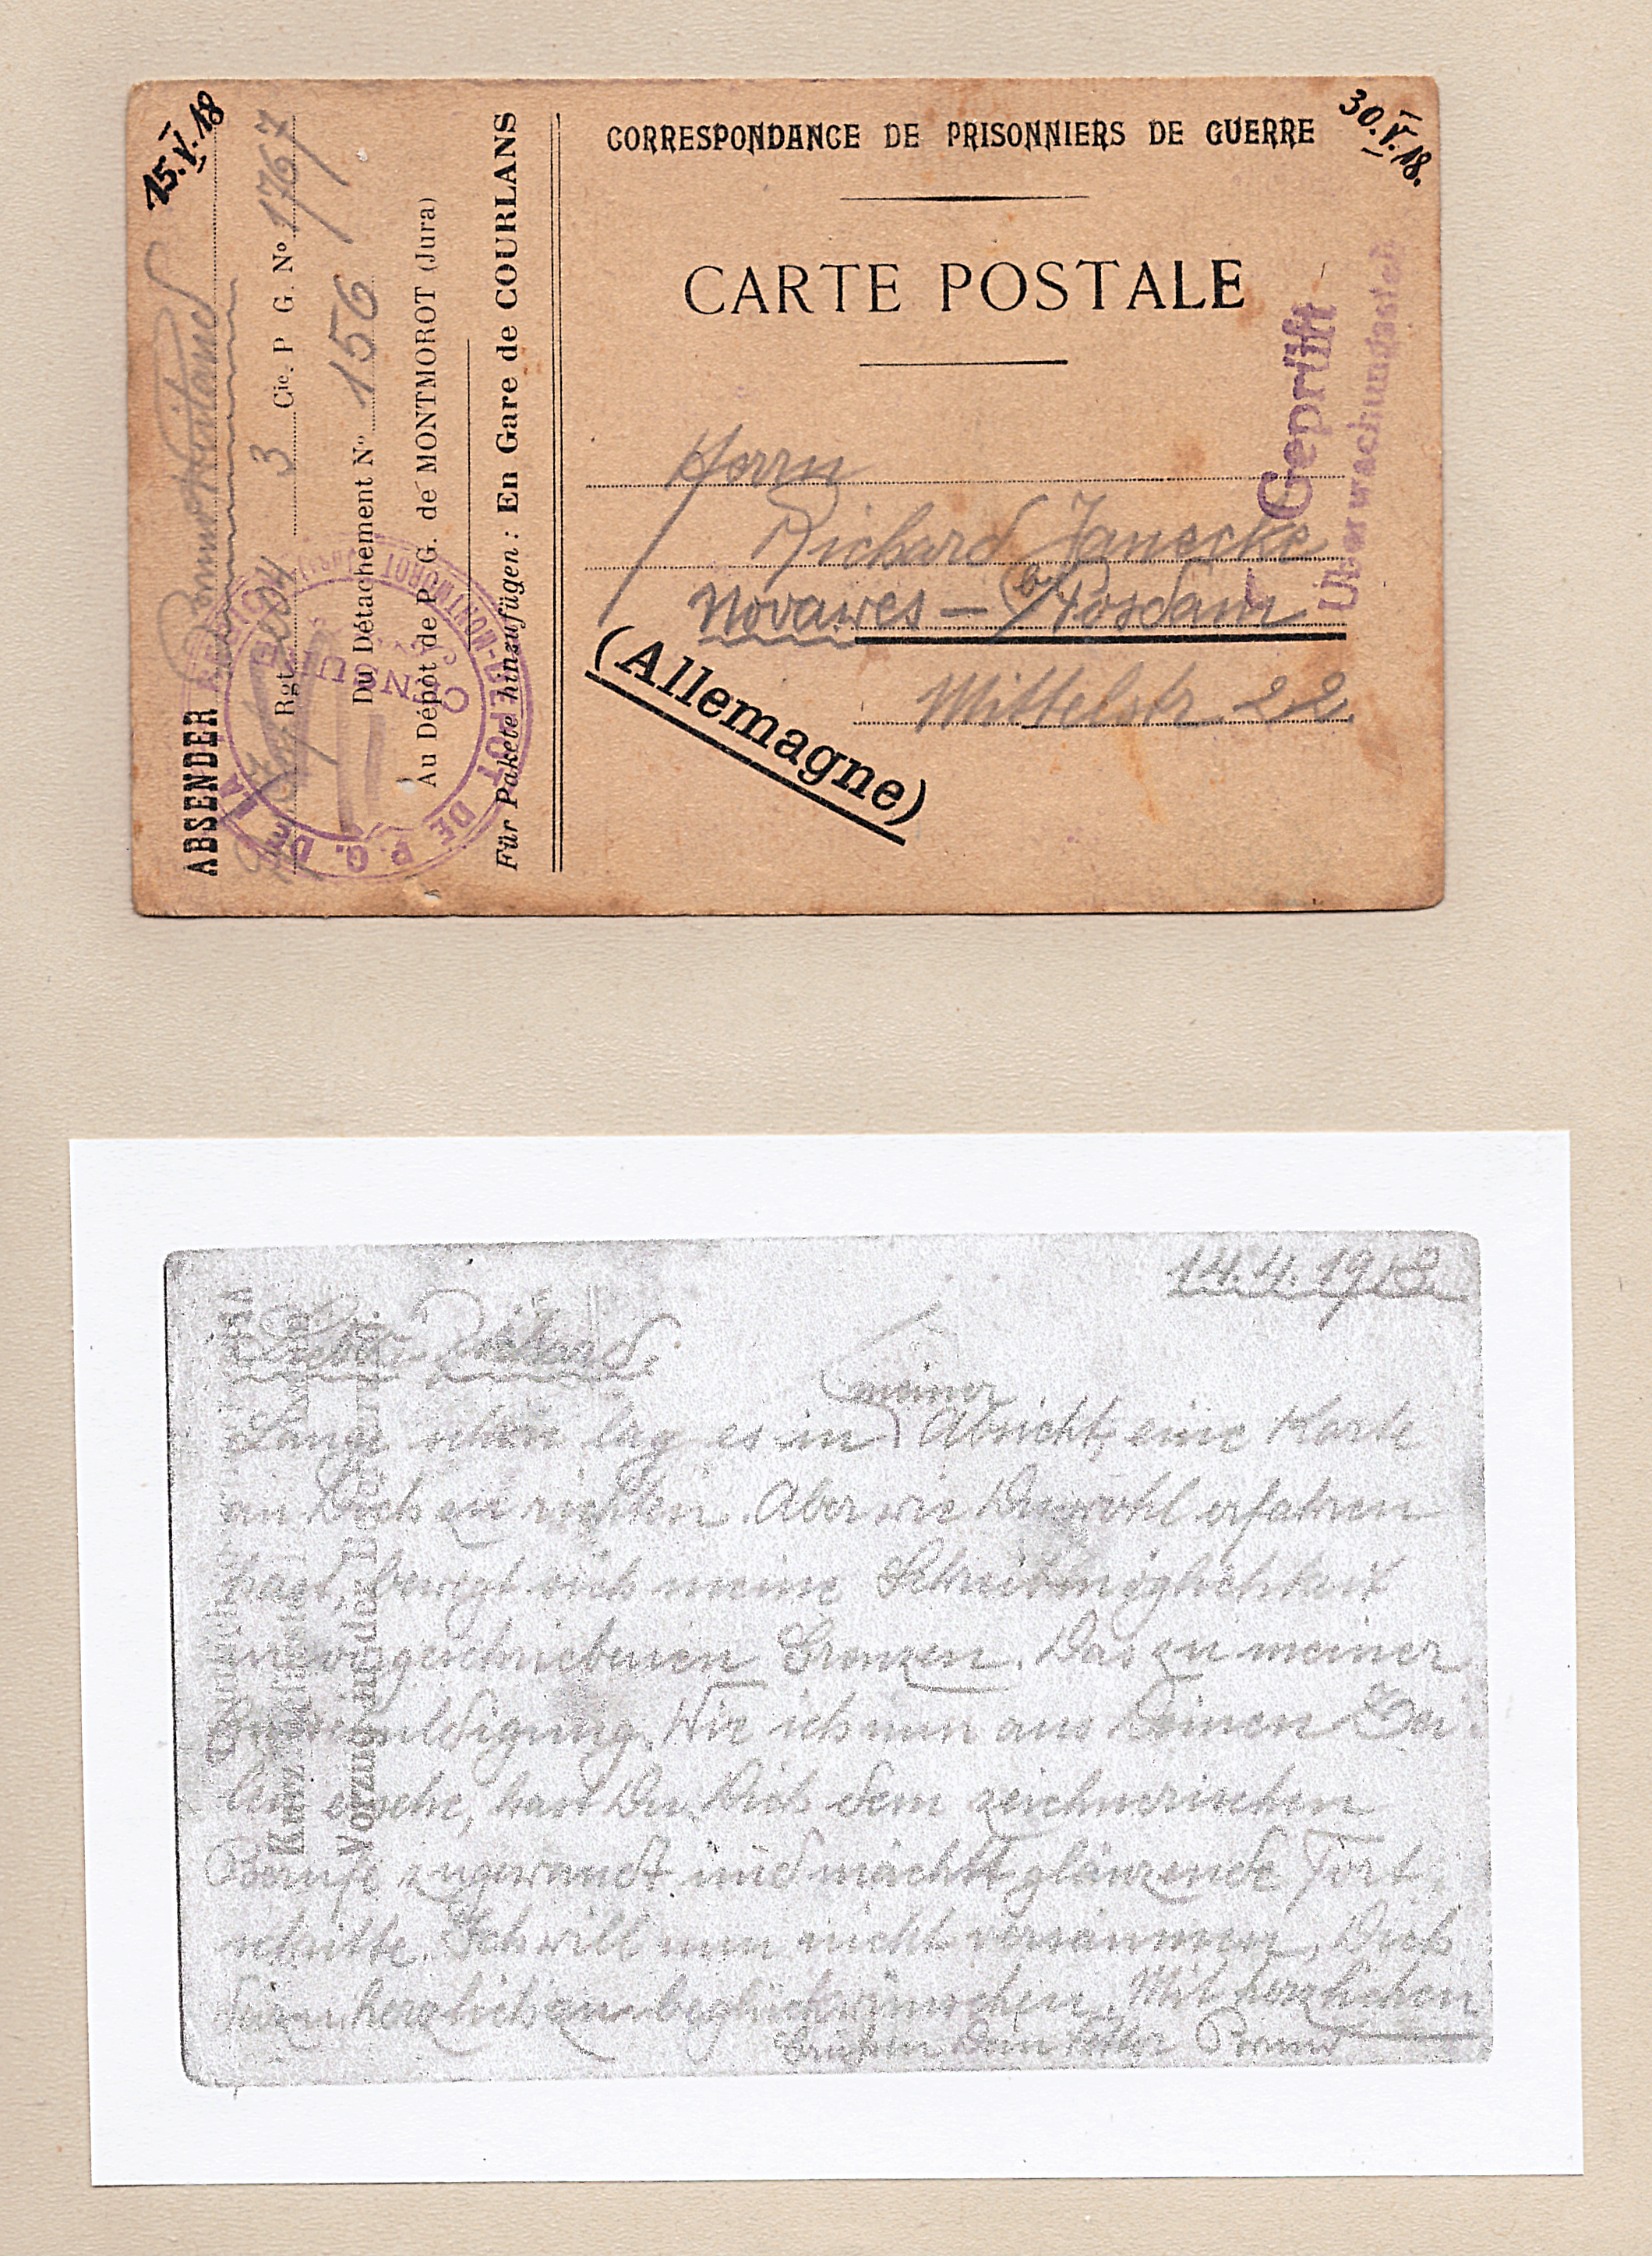 15.V.18
30.V.18.
CORRESPONDANCE DE PRISONNIERS DE GUERRE
CARTE POSTALE
Herrn
Richard Janecke
Novawes - b/ Posdam
(Allemagne)
Mittelstr. 22.
Geprüft
Überwachungsstelle
ABSENDER
Rgt. 204 3 Cie. P G. No 1767
Du Détachement No 156
Au Dépôt de P. G. de MONTMOROT (Jura)
Für Pakete hinzufügen: En Gare de COURLANS
DEPOT DE P. G. DE
MONTMOROT
14.4.1918
Lieber Richard.
Lange schon lag es in meiner Absicht, eine Karte
an Dich zu richten. Aber wie Du wohl erfahren
hast, bewegt sich meine Schreibmöglichkeit
in vorgeschriebenen Grenzen. Das zu meiner
Entschuldigung. Wie ich nun aus Deinen Zei-
len ersehe, hast Du Dich dem zeichnerischen
Berufe zugewandt und machst glänzende Fort-
schritte. Ich will nun nicht versäumen, Dich
dazu herzlich zu beglückwünschen. Mit herzlichen
Grüßen Dein Vetter
Kurz